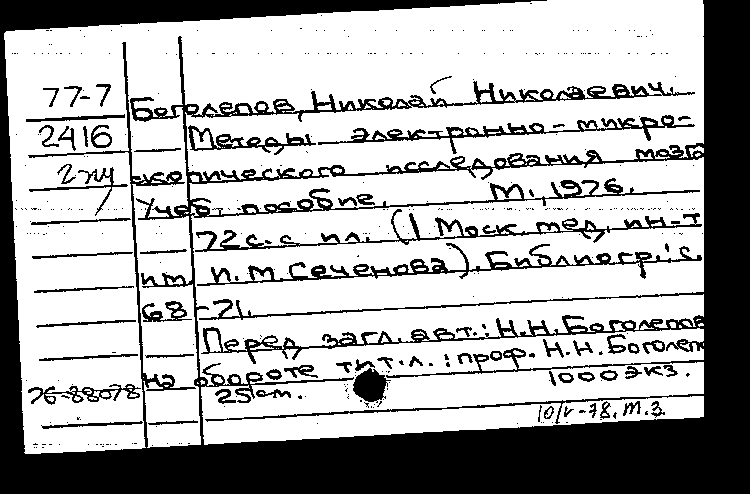 77-7
Боголепов, Николай Николаевич.
2416
Методы электронно-микро-
скопического исследования мозга
Учеб. пособие. М., 1976.
72 с. с ил. (I Моск. мед. ин-т
им. И.М. Сеченова). Библиогр.: с.
68-71.
Перед загл. авт.: Н.Н. Боголепов
На обороте тит. л.: проф. Н.Н. Боголеп
76-88078
25 см. 1000 экз.
10/V-78. М.З.